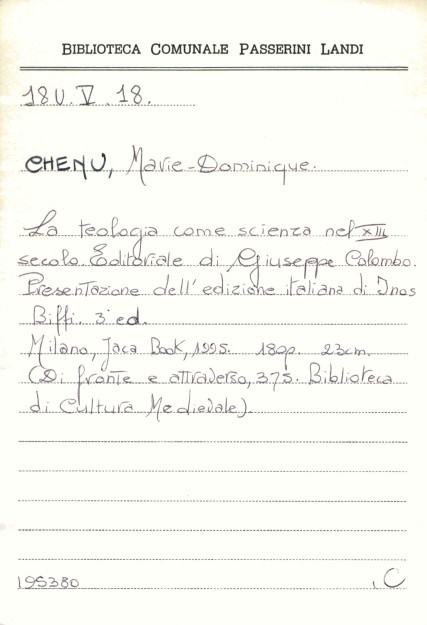 BIBLIOTECA COMUNALE PASSERINI LANDI
18U. V. 18.
CHENU, Marie-Dominique.
La teologia come scienza nel XIII
secolo. Editoriale di Giuseppe Colombo.
Presentazione dell'edizione italiana di Inos
Biffi. 3ª ed.
Milano, Jaca Book, 1995. 180p. 23cm.
(Di fronte e attraverso, 375. Biblioteca
di Cultura Medievale).
195380
, C